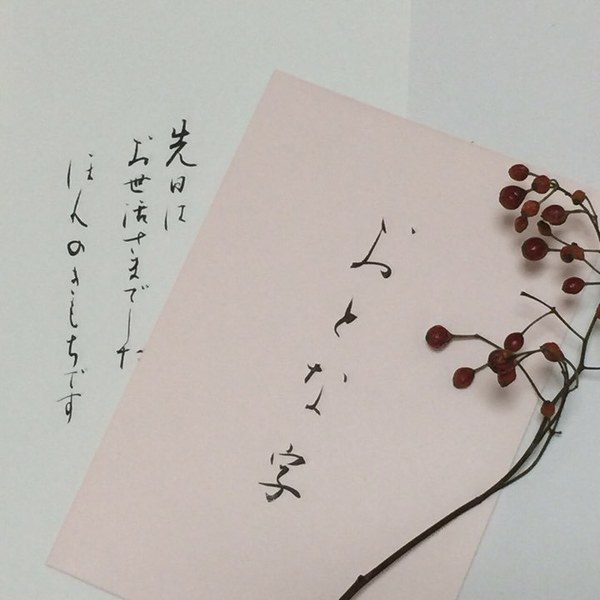 先日は
お世話さまでした
ほんのきもちです
おとな字